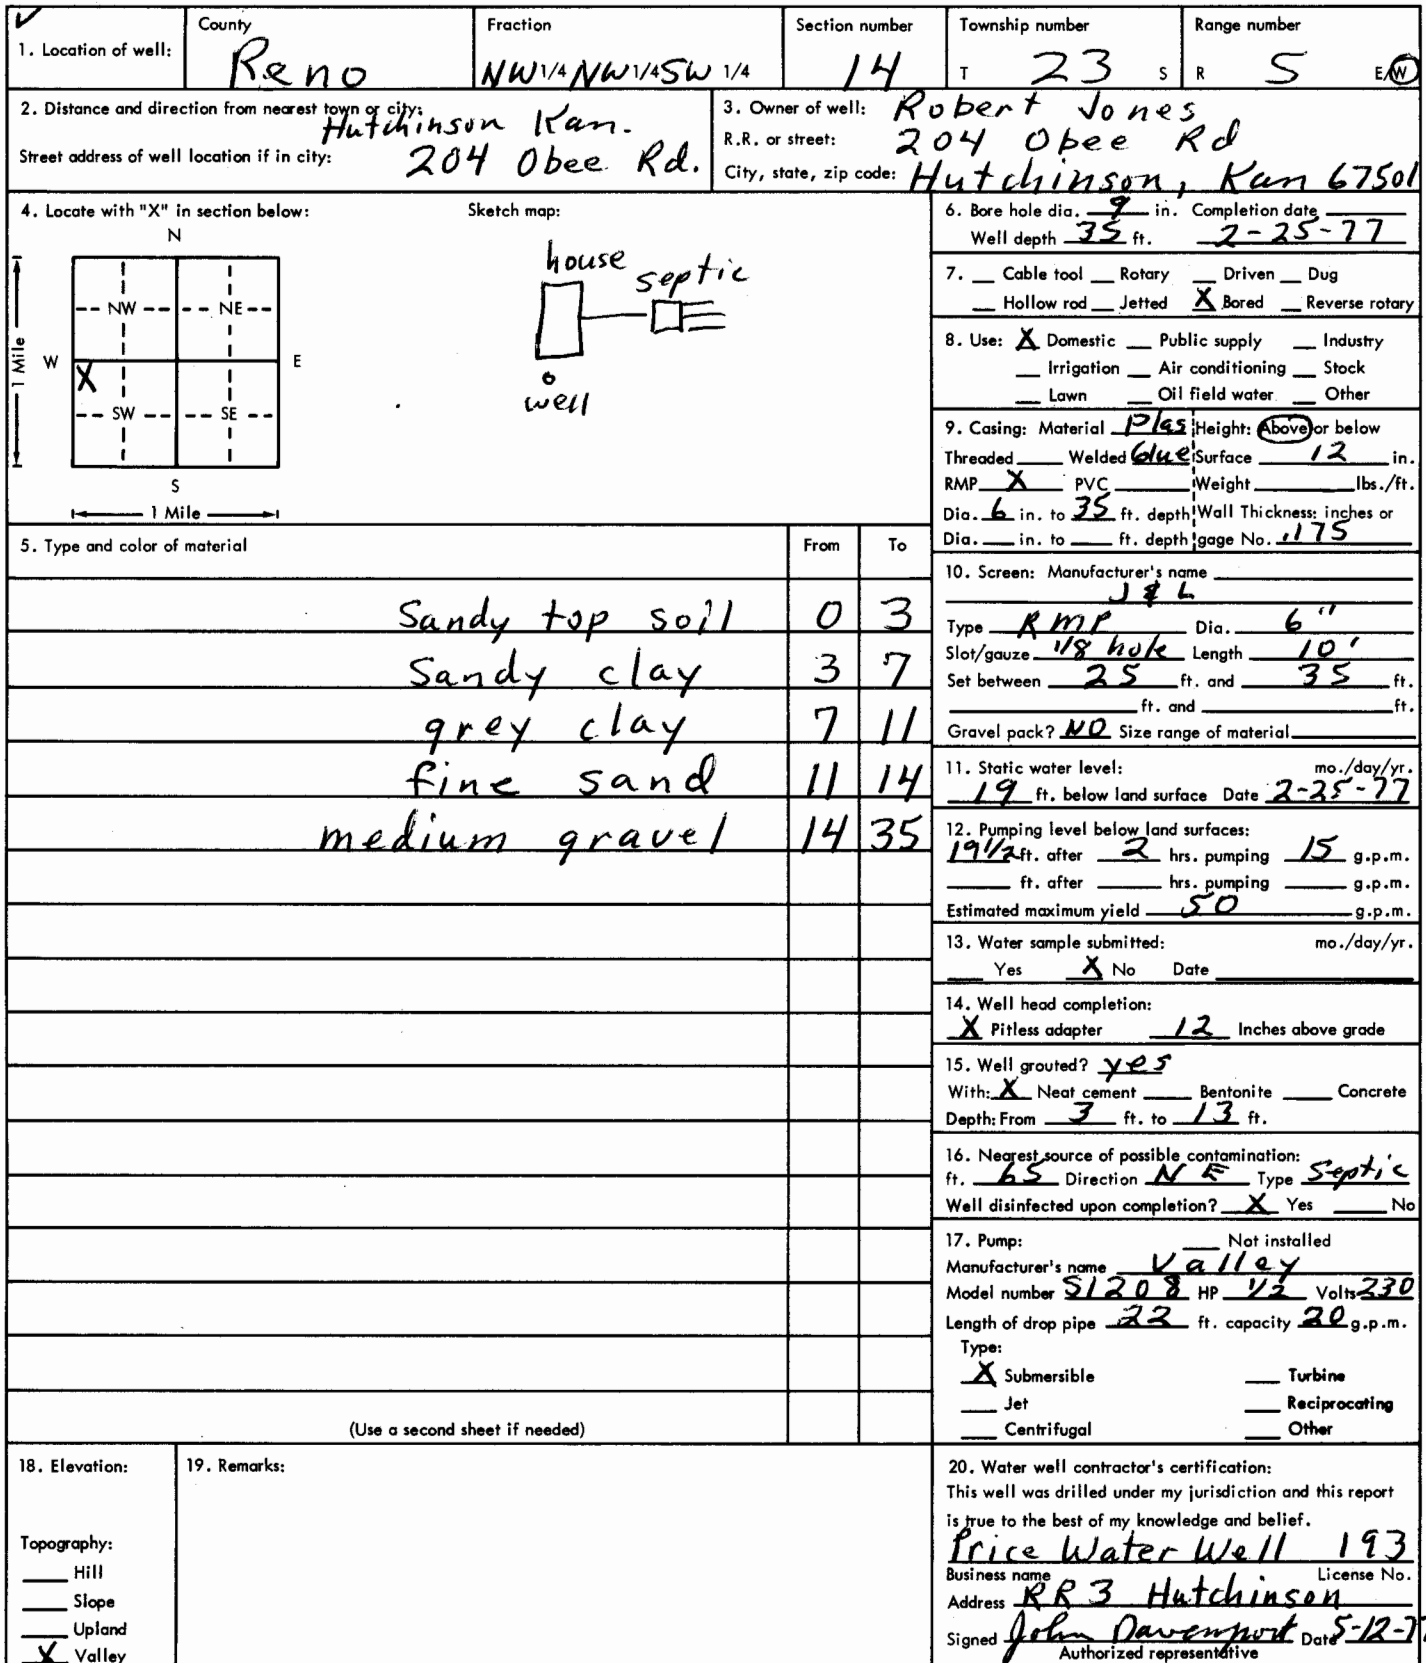 ✓
1. Location of well:
County
Reno
Fraction
NW 1/4 NW 1/4 SW 1/4
Section number
14
Township number
T 23 S
Range number
R 5 E/W
2. Distance and direction from nearest town or city:
Hutchinson Kan.
Street address of well location if in city: 204 Obee Rd.
3. Owner of well: Robert Jones
R.R. or street: 204 Obee Rd
City, state, zip code: Hutchinson, Kan 67501
4. Locate with "X" in section below:
N
NW NE
W E
X
SW SE
S
1 Mile
1 Mile
Sketch map:
house
septic
well
5. Type and color of material From To
Sandy top soil 0 3
Sandy clay 3 7
grey clay 7 11
fine sand 11 14
medium gravel 14 35
(Use a second sheet if needed)
6. Bore hole dia. 9 in. Completion date
Well depth 35 ft. 2-25-77
7. __ Cable tool __ Rotary __ Driven __ Dug
__ Hollow rod __ Jetted X Bored __ Reverse rotary
8. Use: X Domestic __ Public supply __ Industry
__ Irrigation __ Air conditioning __ Stock
__ Lawn __ Oil field water __ Other
9. Casing: Material Plas Height: Above or below
Threaded ___ Welded Glue Surface 12 in.
RMP X PVC ___ Weight ___ lbs./ft.
Dia. 6 in. to 35 ft. depth Wall Thickness: inches or
Dia. __ in. to __ ft. depth gage No. .175
10. Screen: Manufacturer's name
J & L
Type RMP Dia. 6"
Slot/gauze 1/8 hole Length 10'
Set between 25 ft. and 35 ft.
___ ft. and ___ ft.
Gravel pack? NO Size range of material
11. Static water level: mo./day/yr.
19 ft. below land surface Date 2-25-77
12. Pumping level below land surfaces:
19 1/2 ft. after 2 hrs. pumping 15 g.p.m.
___ ft. after ___ hrs. pumping ___ g.p.m.
Estimated maximum yield 50 g.p.m.
13. Water sample submitted: mo./day/yr.
__ Yes X No Date
14. Well head completion:
X Pitless adapter 12 Inches above grade
15. Well grouted? yes
With: X Neat cement ___ Bentonite ___ Concrete
Depth: From 3 ft. to 13 ft.
16. Nearest source of possible contamination:
ft. 65 Direction NE Type Septic
Well disinfected upon completion? X Yes ___ No
17. Pump: ___ Not installed
Manufacturer's name Valley
Model number S1208 HP 1/2 Volts 230
Length of drop pipe 22 ft. capacity 20 g.p.m.
Type:
X Submersible __ Turbine
__ Jet __ Reciprocating
__ Centrifugal __ Other
18. Elevation:
Topography:
__ Hill
__ Slope
__ Upland
X Valley
19. Remarks:
20. Water well contractor's certification:
This well was drilled under my jurisdiction and this report
is true to the best of my knowledge and belief.
Price Water Well 193
Business name License No.
Address RR 3 Hutchinson
Signed John Davenport Date 5-12-77
Authorized representative